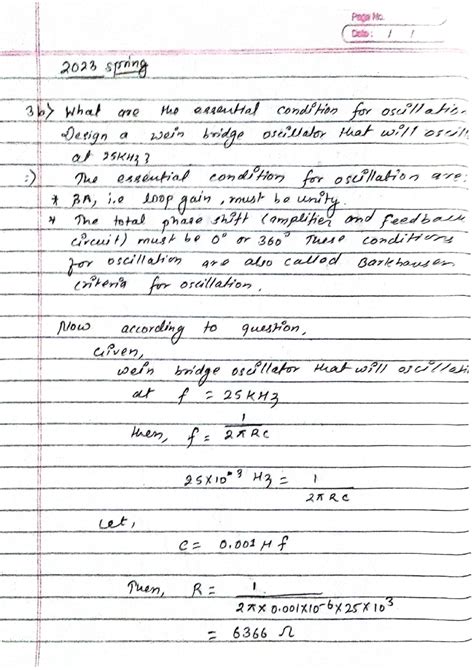 Page No.
Date: / /
2023 spring
3b) What are the essential condition for oscillatio
Design a wein bridge oscillator that will oscill
at 25KHz?
:) The essential condition for oscillation are:
* βA, i.e loop gain, must be unity.
* The total phase shift (amplifier and feedback
circuit) must be 0° or 360° These conditions
for oscillation are also called Barkhausen
criteria for oscillation.
Now according to question,
Given,
wein bridge oscillator that will oscillat
at f = 25KHz
then, f = 1 / 2πRC
25×10^-3 Hz = 1 / 2πRC
Let,
C = 0.001 μf
Then, R = 1 / 2π×0.001×10^-6×25×10^3
= 6366 Ω